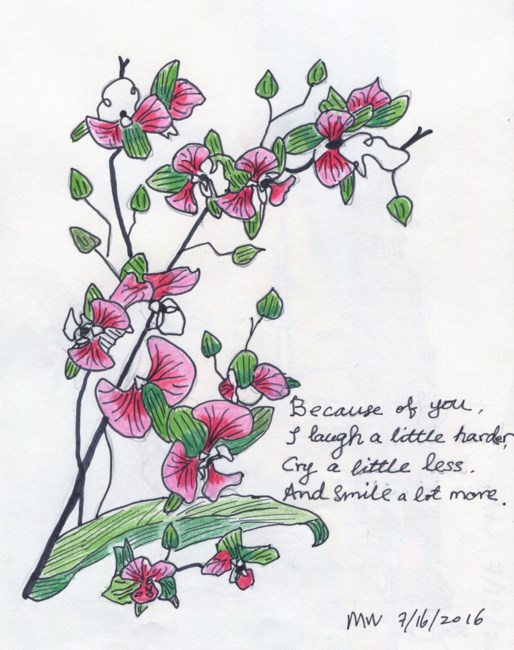 Because of you,
I laugh a little harder,
Cry a little less.
And smile a lot more.
MW 7/16/2016